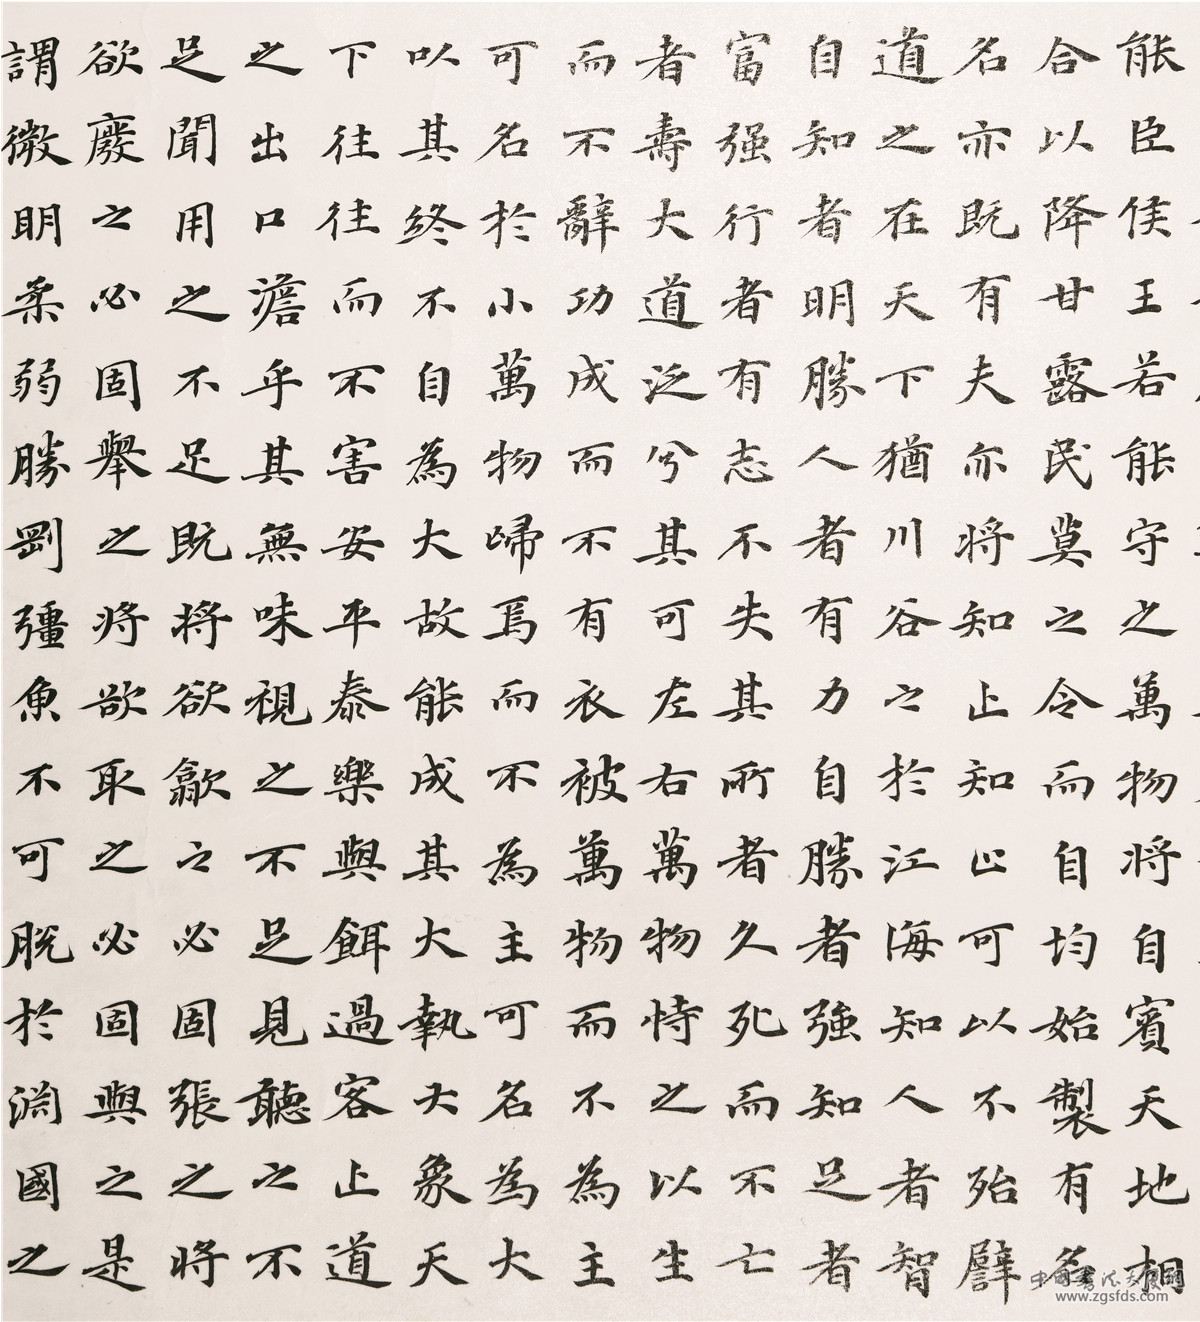 能臣侯王若能守之萬物将自賓天地相
合以降甘露民莫之令而自均始製有名
名亦既有夫亦将知止知止可以不殆譬
道之在天下猶川谷之於江海知人者智
自知者明勝人者有力自勝者強知足者
富强行者有志不失其所者久死而不亡
者壽大道泛兮其可左右萬物恃之以生
而不辭功成而不有衣被萬物而不為主
可名於小萬物歸焉而不為主可名為大
以其終不自為大故能成其大執大象天
下往往而不害安平泰樂與餌過客止道
之出口澹乎其無味視之不足見聽之不
足聞用之不足既将欲歙之必固張之将
欲廢之必固舉之将欲取之必固與之是
謂微明柔弱勝剛彊魚不可脱於淵國之
中国书法大展网
www.zgsfds.com